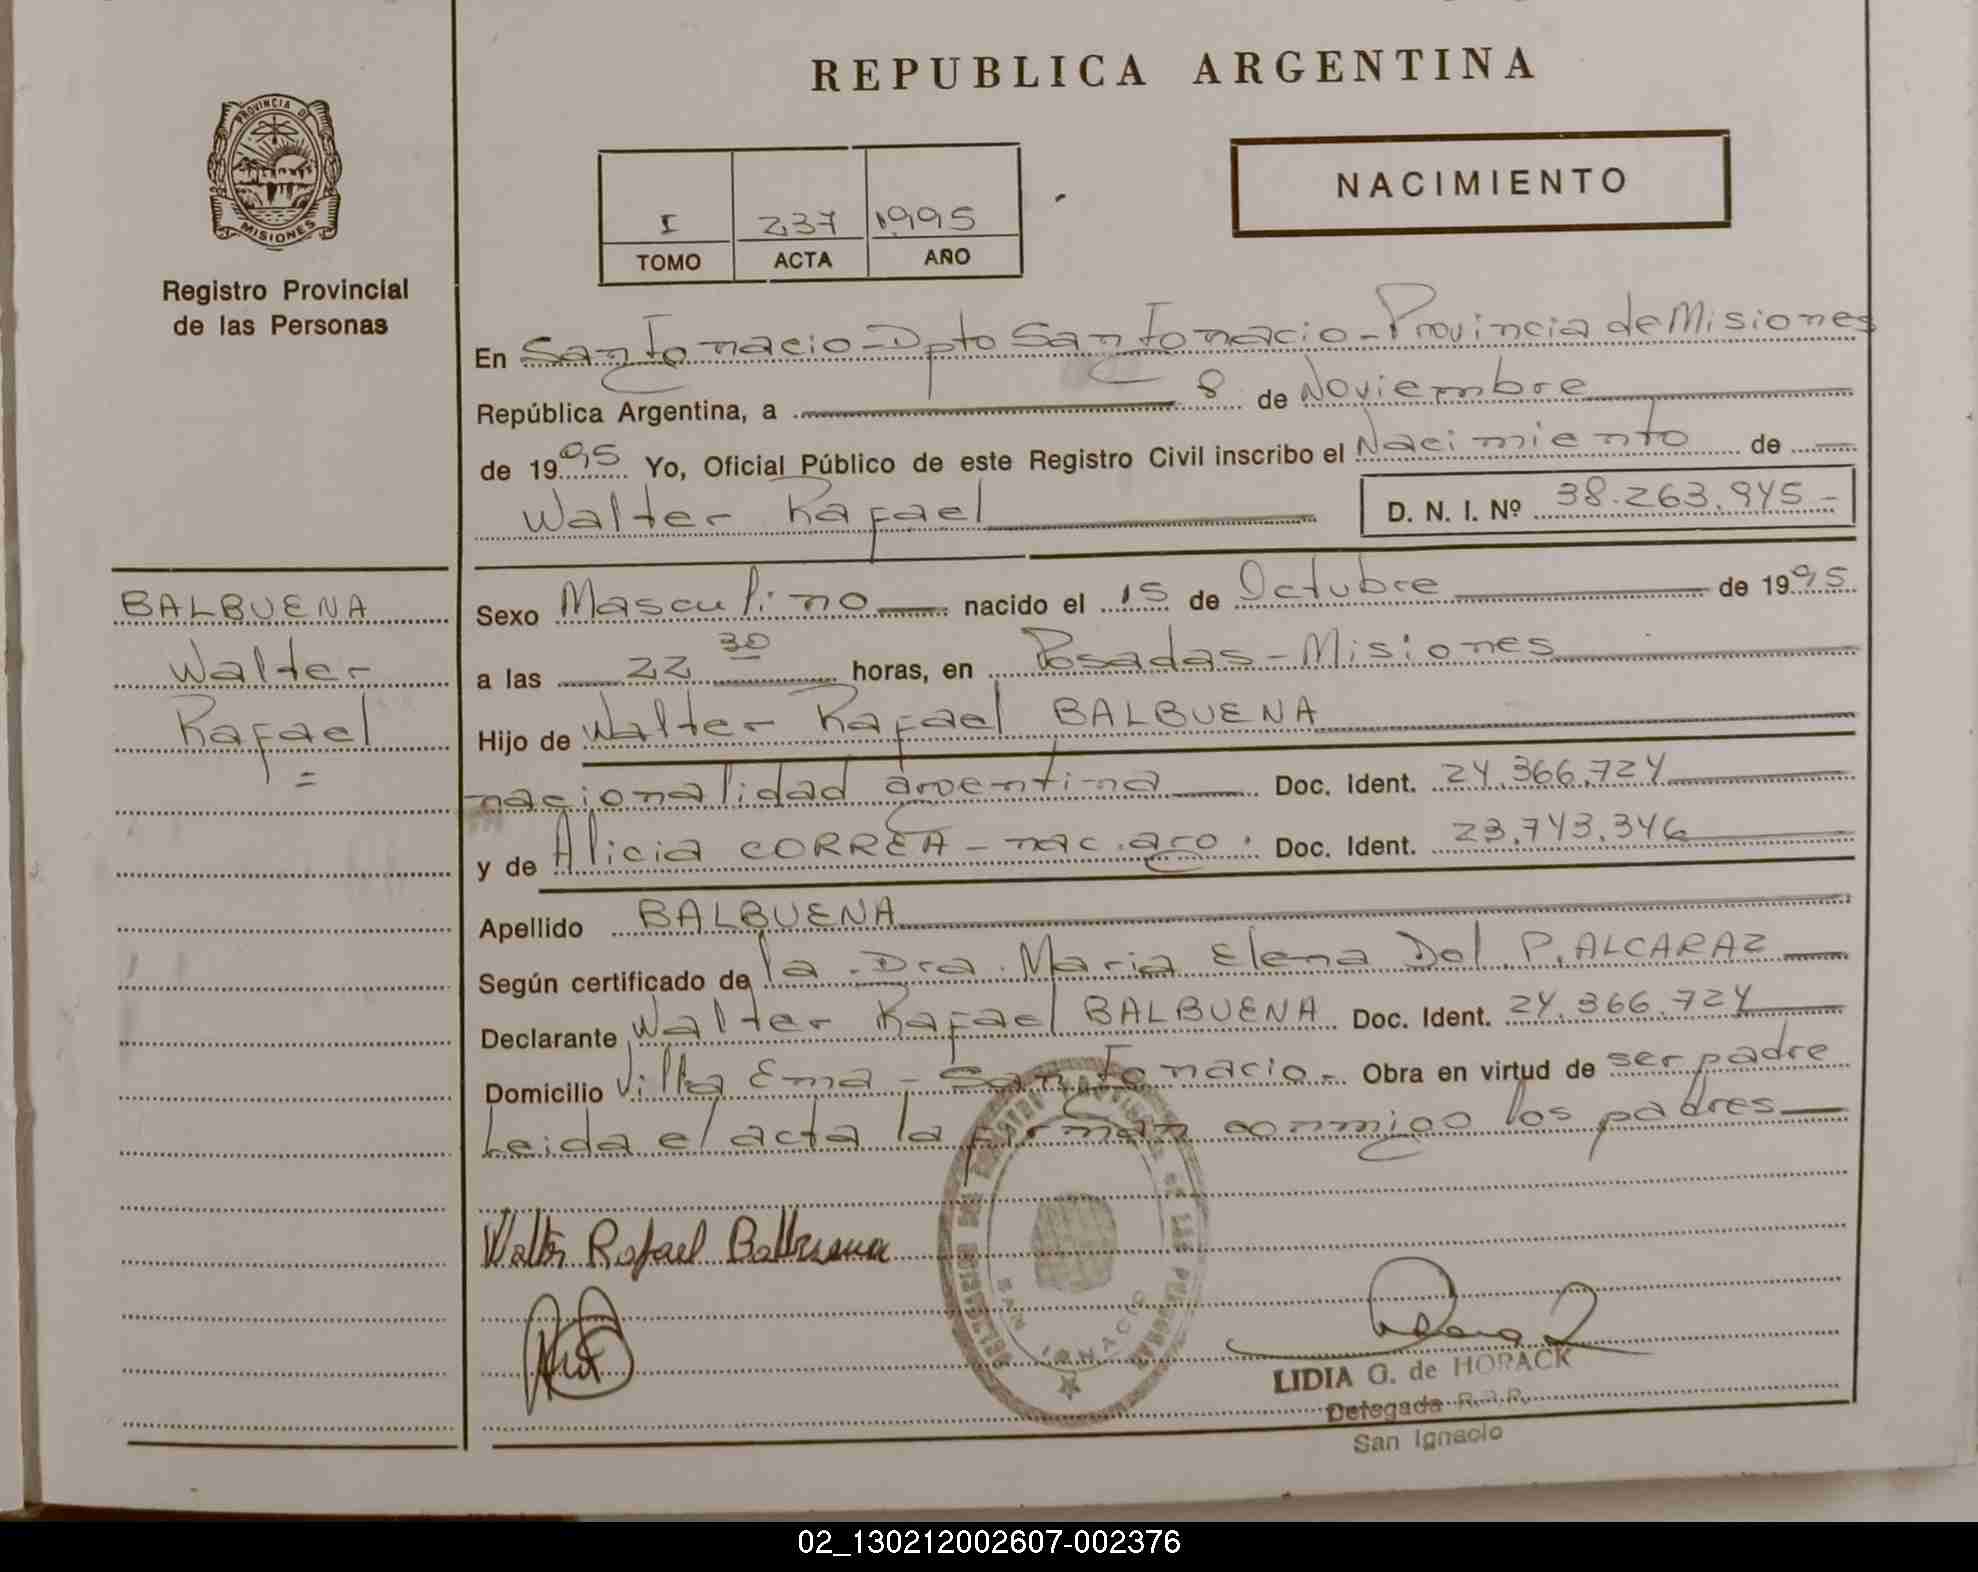 REPUBLICA ARGENTINA
PROVINCIA DE
MISIONES
Registro Provincial
de las Personas
I 237 1995
TOMO ACTA AÑO
NACIMIENTO
En San Ignacio - Dpto San Ignacio - Provincia de Misiones
República Argentina, a 8 de Noviembre
de 1995 Yo, Oficial Público de este Registro Civil inscribo el Nacimiento de
Walter Rafael D. N. I. Nº 38.263.945-
BALBUENA
Walter
Rafael
=
Sexo Masculino nacido el 15 de Octubre de 1995
a las 22 30 horas, en Posadas - Misiones
Hijo de Walter Rafael BALBUENA
nacionalidad argentina Doc. Ident. 24.366.724
y de Alicia CORREA - nac. arg. Doc. Ident. 23.743.346
Apellido BALBUENA
Según certificado de la Dra. Maria Elena Del P. ALCARAZ
Declarante Walter Rafael BALBUENA Doc. Ident. 24.366.724
Domicilio Villa Ema - San Ignacio - Obra en virtud de ser padre
Leida el acta la firman conmigo los padres
Walter Rafael Balbuena
SAN IGNACIO
LIDIA G. de HORACK
Delegada R.P.P.
San Ignacio
02_130212002607-002376